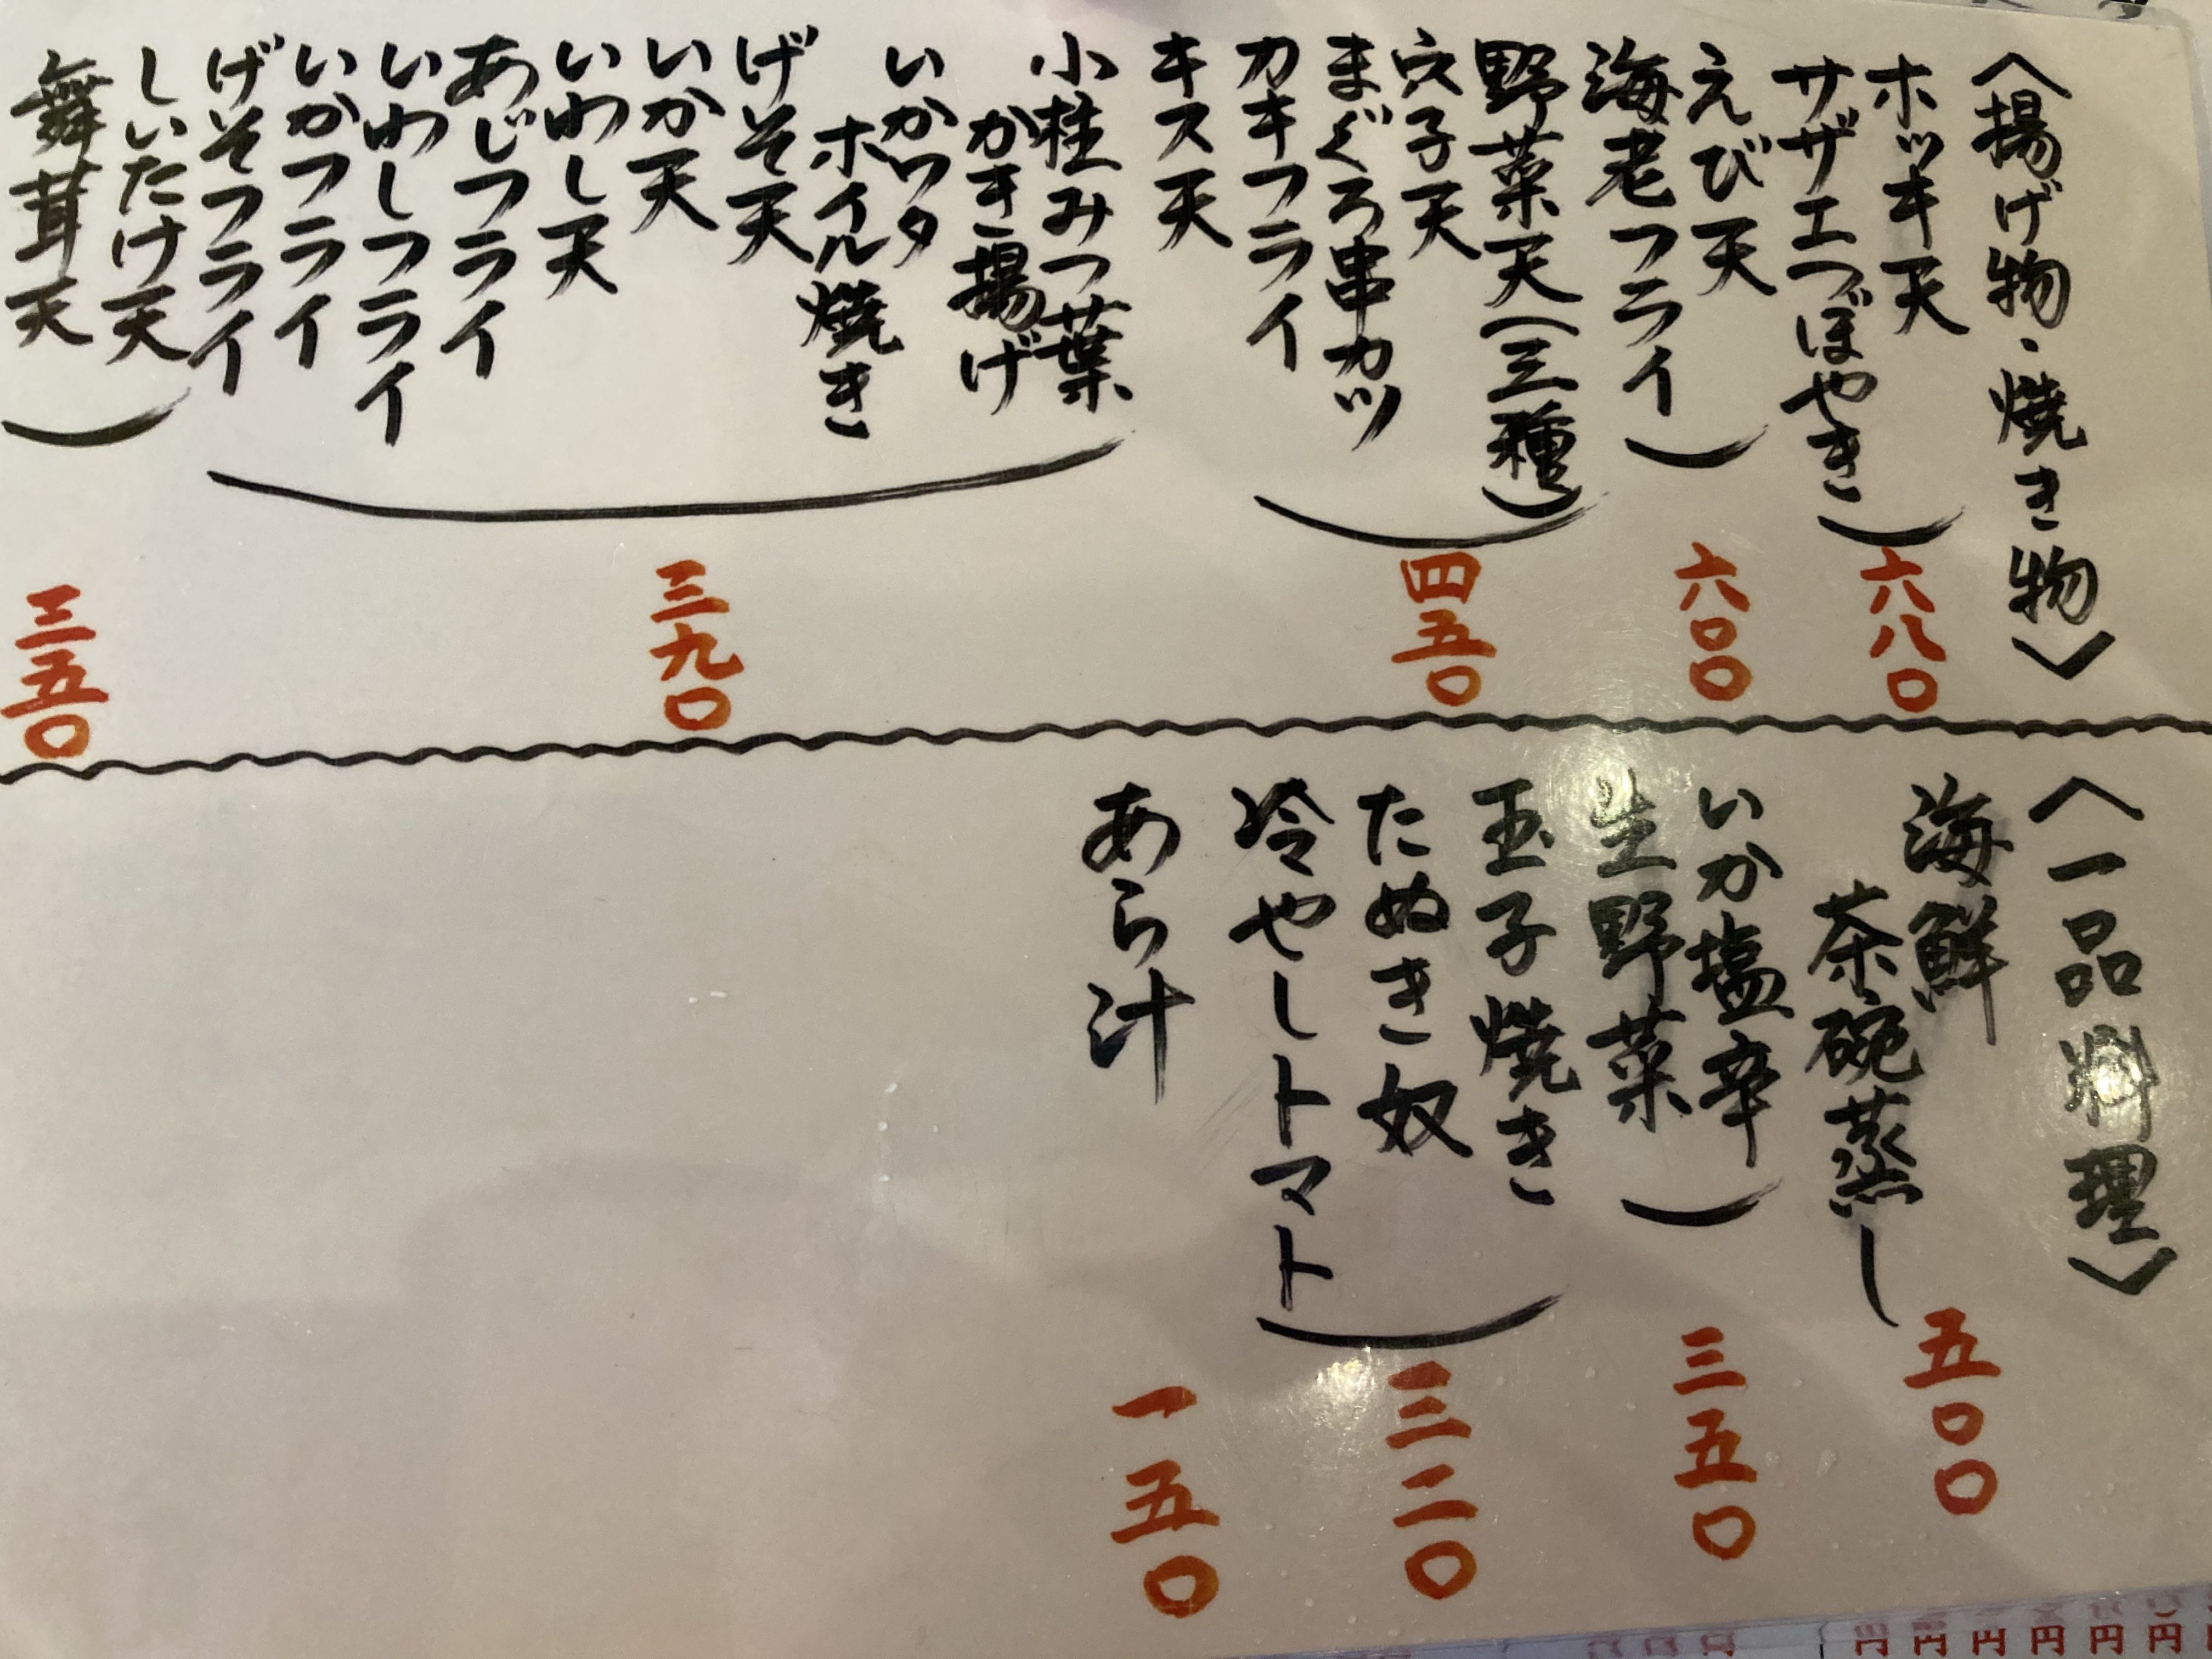 〈揚げ物・焼き物〉
ホッキ天
サザエつぼやき
六八〇
えび天
海老フライ
六〇〇
野菜天(三種)
穴子天
まぐろ串カツ
カキフライ
四五〇
キス天
小柱みつ葉
かき揚げ
いかワタ
ホイル焼き
げそ天
いか天
いわし天
あじフライ
いわしフライ
いかフライ
げそフライ
三九〇
しいたけ天
舞茸天
三五〇
〈一品料理〉
海鮮
茶碗蒸し
五〇〇
いか塩辛
生野菜
三五〇
玉子焼き
たぬき奴
冷やしトマト
三二〇
あら汁
一五〇
円円円円円円